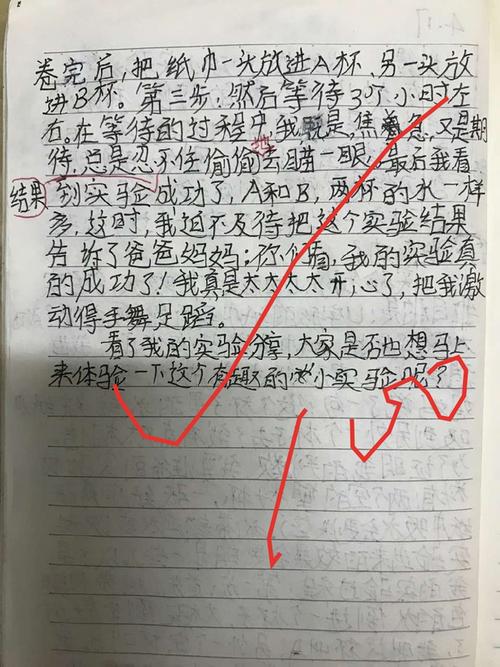 卷完后，把纸巾一头放进A杯，另一头放
进B杯。第三步：然后等待3个小时左
右。在等待的过程中，我既是焦急，又是期
待，总是忍不住偷偷去瞄一眼。最后我看
结果
到实验成功了，A和B，两杯的水一样
多，这时，我迫不及待把这个实验结果
告诉了爸爸妈妈：你们看，我的实验真
的成功了！我真是太太太太开心了，把我激
动得手舞足蹈。
看了我的实验分享，大家是否也想马上
来体验一下这个有趣的小实验呢？